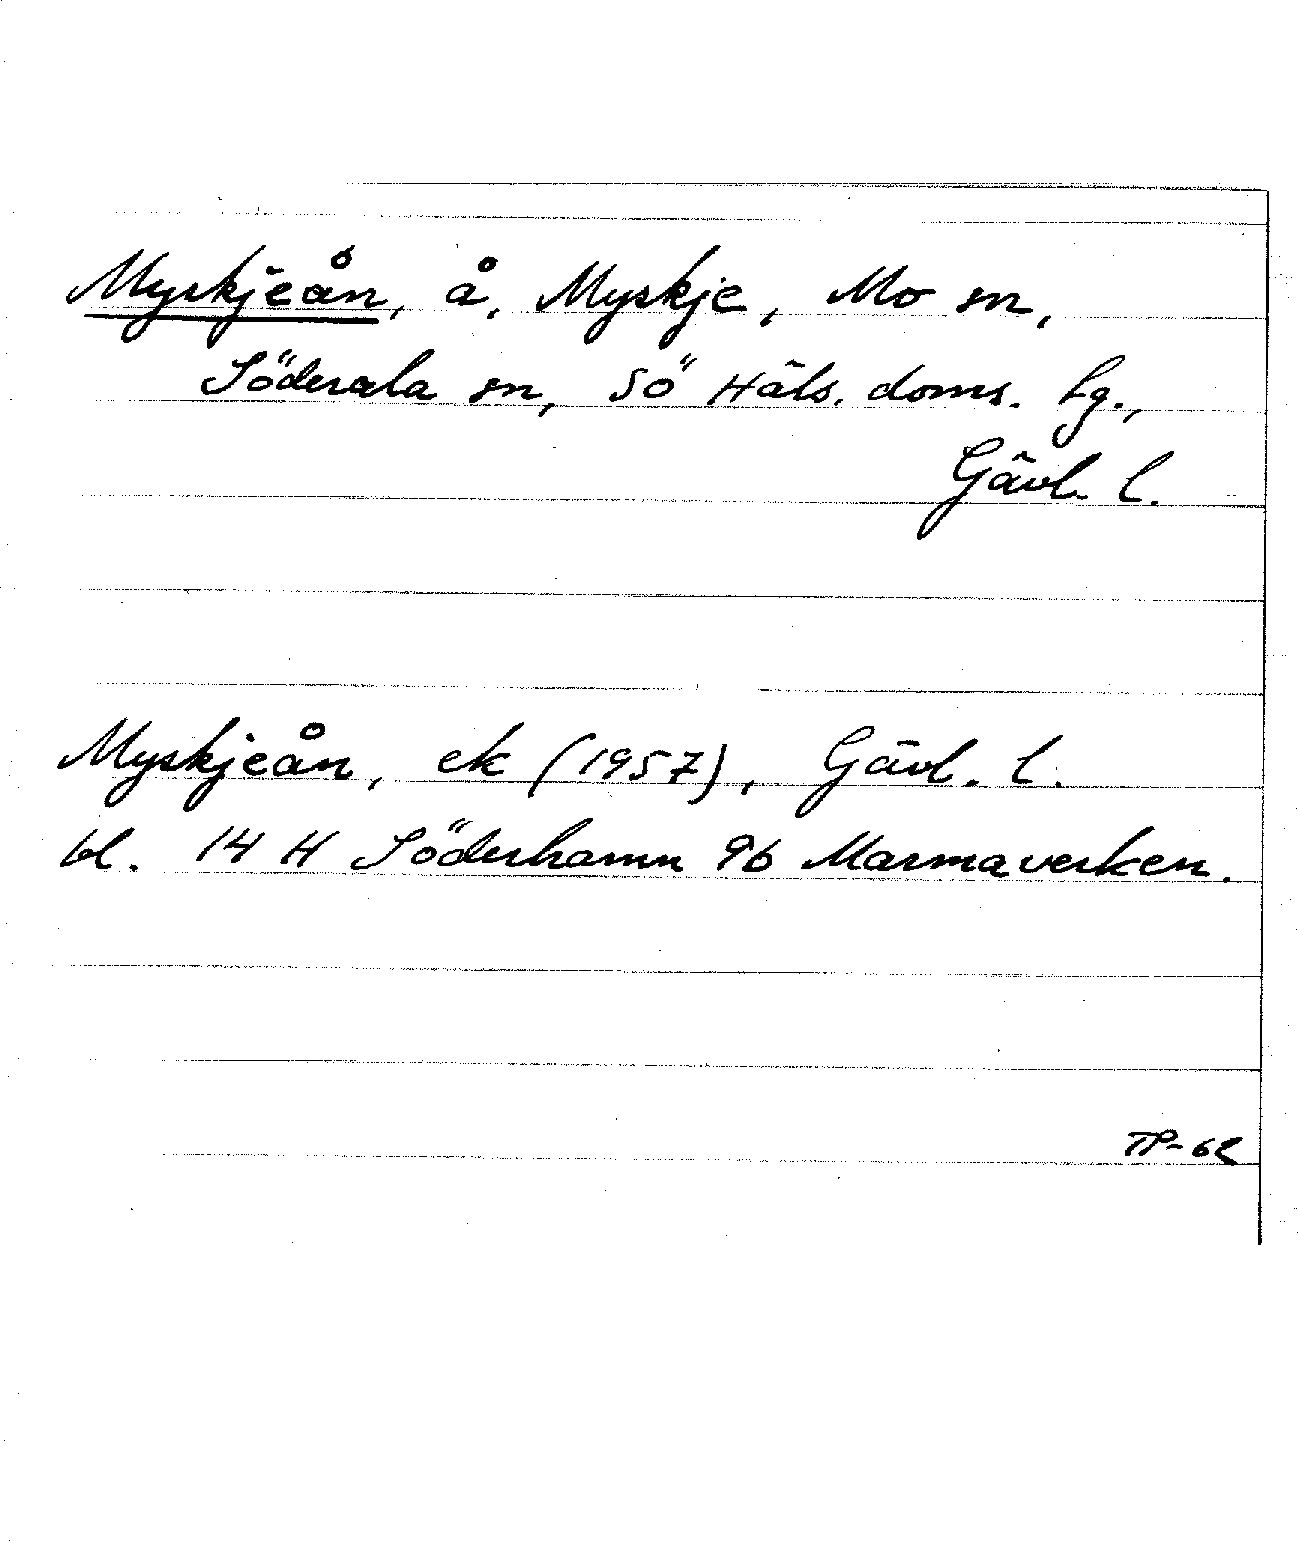 Myskjeån, å, Myskje, Mo sn,
Söderala sn, Sö Häls. doms. tg.,
Gävl. l.
Myskjeån, ek (1957), Gävl. l.
bl. 14 H Söderhamn 9b Marmaverken.
TP-62